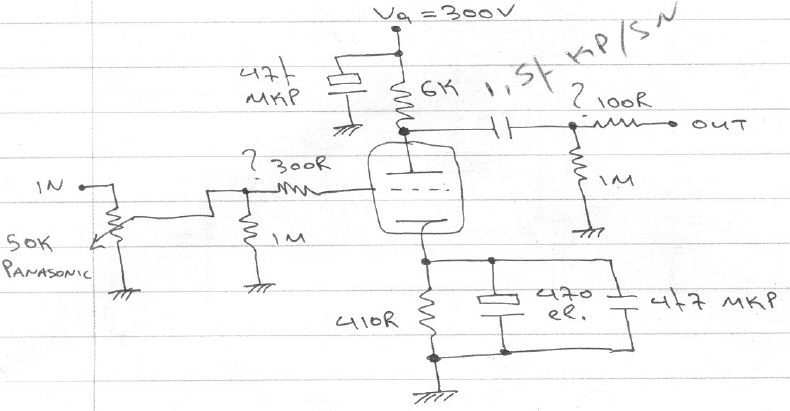 Va = 300V
47f
MKP
6K
1,5f KP/SN
? 100R
OUT
1M
IN
? 300R
50K
PANASONIC
1M
410R
470
el.
4f7 MKP